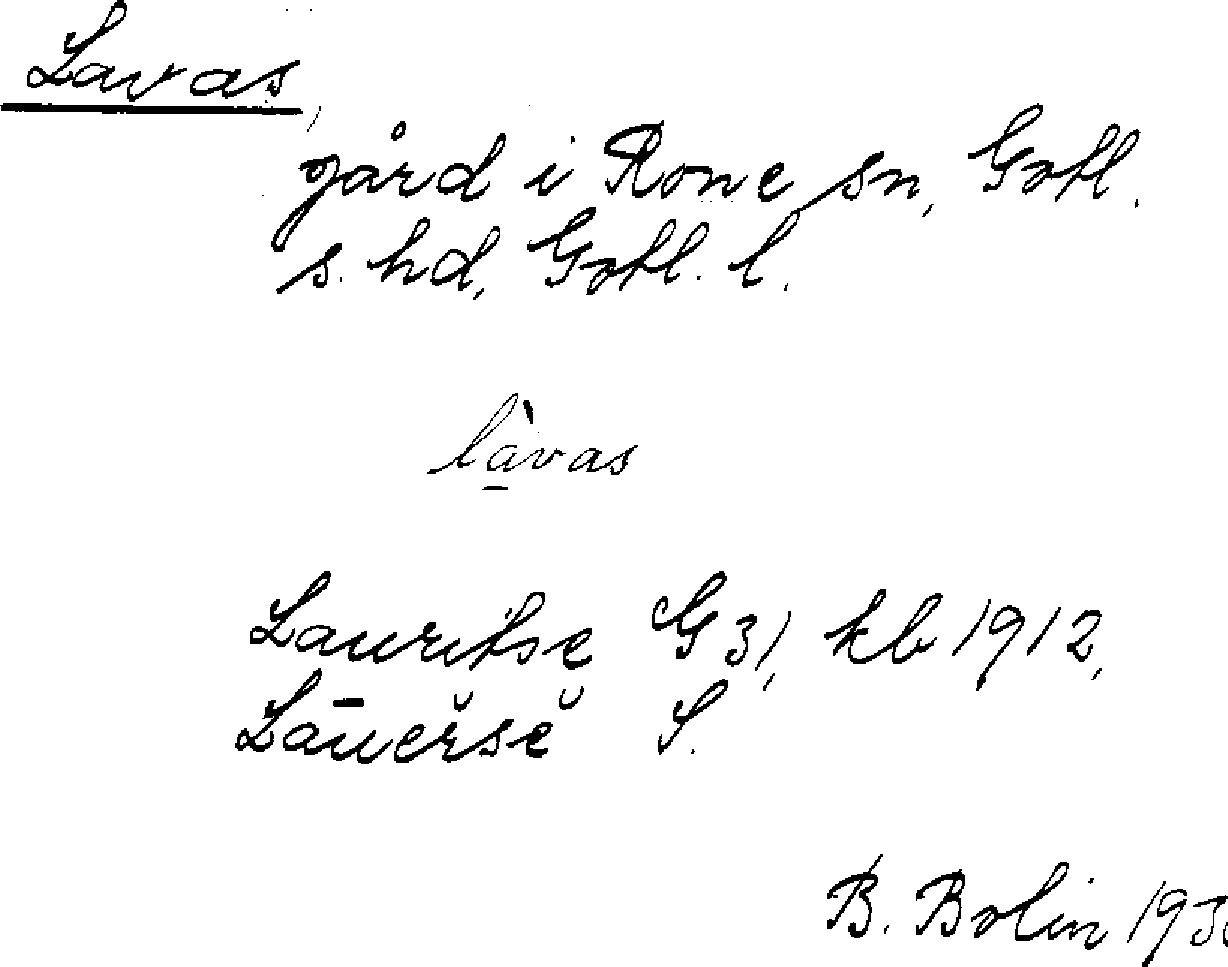 Lavas,
gård i Rone sn, Gotl.
s. hd, Gotl. l.
làvas
Lauritse G 31, kb 1912,
Lāuer̆sĕ S.
B. Bolin